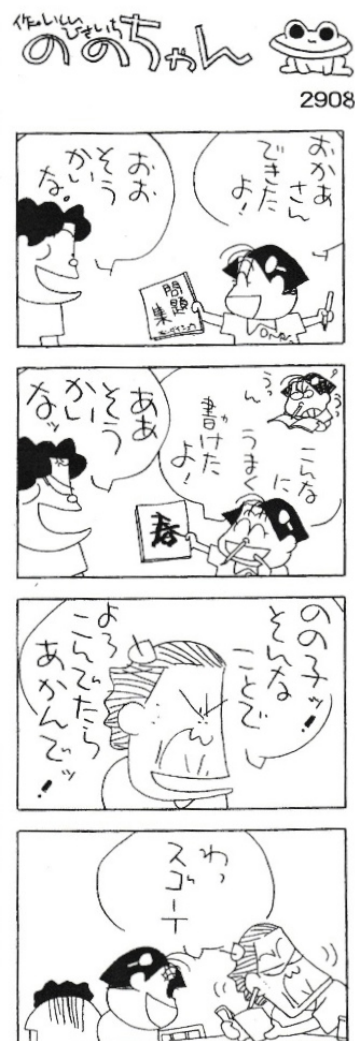 作・いしいひさいち
ののちゃん
2908
おかあ
さん
できた
よ!
おお
そう
かい
な。
問題
集
こんな
に
うまく
書けた
よ!
うっ
うっ
ん
ああ
そう
かい
なッ
春
のの子ッ
そんな
ことで
よろ
こんでたら
あかんでッ!
わっ
スゴーイ